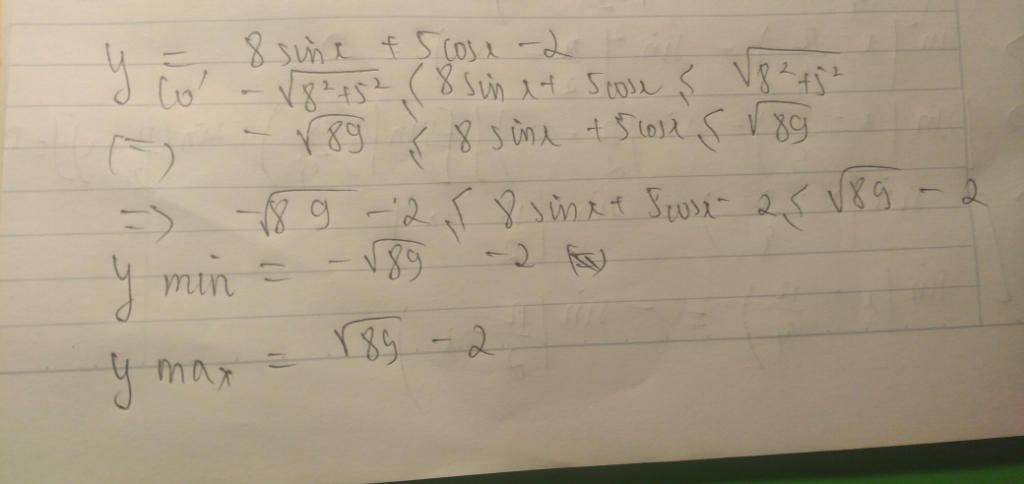 y = 8 sinx + 5cosx - 2
Có - √8²+5² ≤ 8 sin x + 5cosx ≤ √8²+5²
(=) - √89 ≤ 8 sinx + 5cosx ≤ √89
=> -√89 - 2 ≤ 8 sinx + 5cosx - 2 ≤ √89 - 2
y min = - √89 - 2
y max = √89 - 2